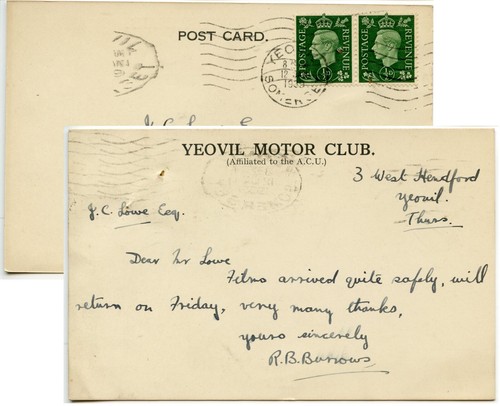 POST CARD.
POSTAGE REVENUE
POSTAGE REVENUE
YEOVIL
SOMERSET
YEOVIL MOTOR CLUB.
(Affiliated to the A.C.U.)
3 West Hendford
Yeovil.
Thurs.
J. C. Lowe Esq.
Dear Mr Lowe
Films arrived quite safely, will
return on Friday, very many thanks,
yours sincerely
R.B. Burrows